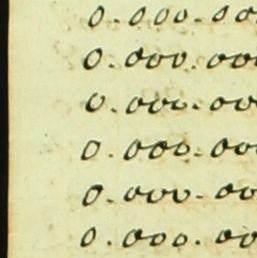 0.000.00
0.000.00
0.000.00
0.000.00
0.000.00
0.000.00